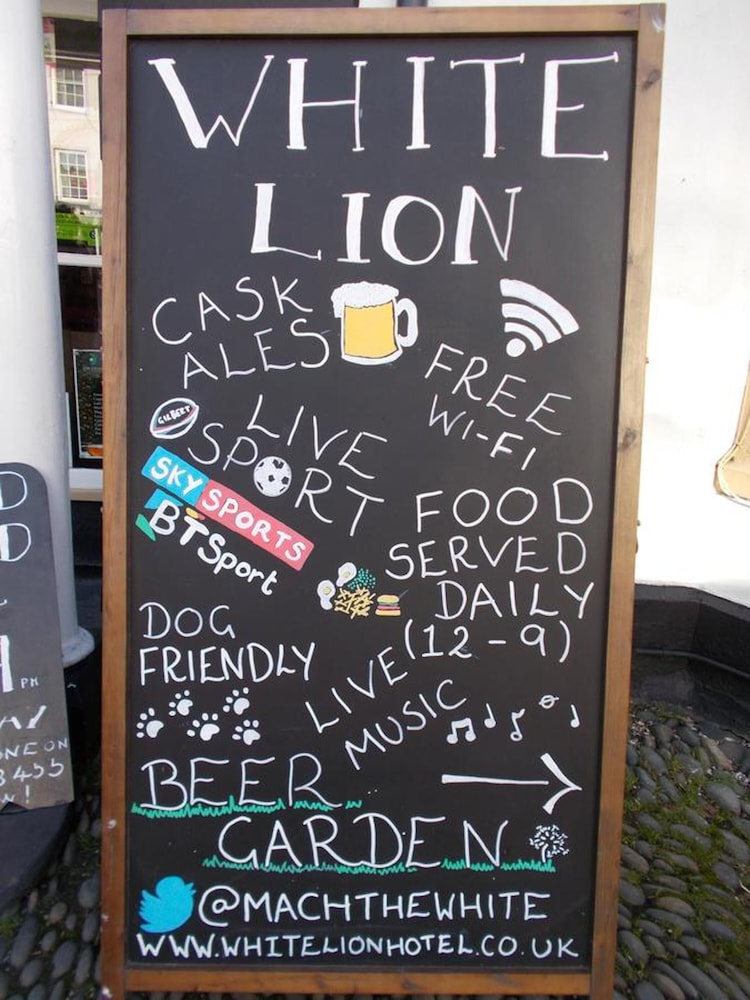 WHITE
LION
CASK
ALES
FREE
WI-FI
GILBERT
LIVE
SPORT
SKY SPORTS
BT Sport
FOOD
SERVED
DAILY
(12-9)
DOG
FRIENDLY
LIVE
MUSIC
BEER
GARDEN
@MACHTHEWHITE
WWW.WHITELIONHOTEL.CO.UK
D
D
PM
AY
NE ON
3455
W!